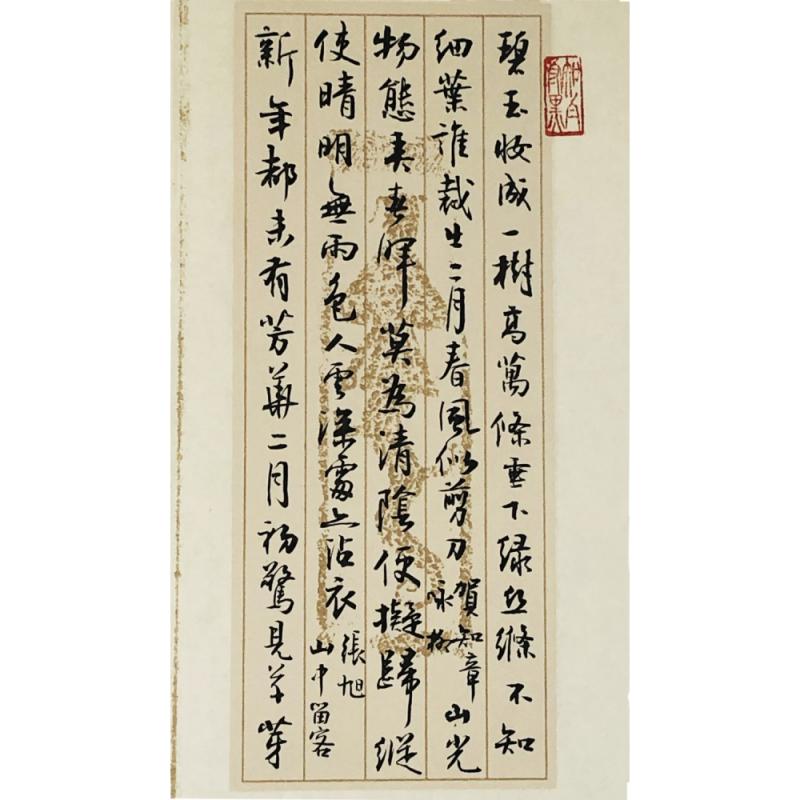 知白守黑
碧玉妝成一樹高萬條垂下緑丝絛不知
細葉誰裁出二月春風似剪刀賀知章咏柳山光
物態弄春暉莫為清陰便擬歸縱
使晴明無雨色入雲深處亦沾衣張旭山中留客
新年都未有芳華二月初驚見草芽